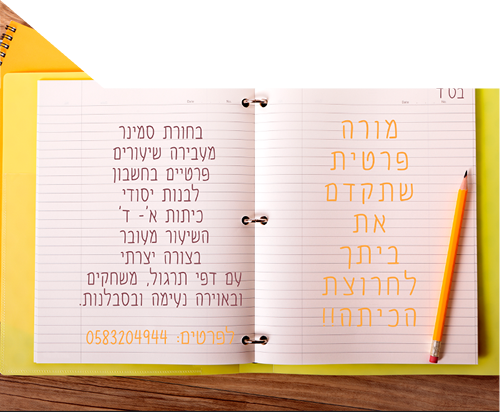 בס"ד
מורה
פרטית
שתקדם
את
ביתך
לחרוצת
הכיתה!!
בחורת סמינר
מעבירה שיעורים
פרטיים בחשבון
לבנות יסודי
כיתות א'- ד'
השיעור מעובר
בצורה יצרתי
עם דפי תרגול, משחקים
ובאוירה נעימה ובסבלנות.
לפרטים: 0583204944